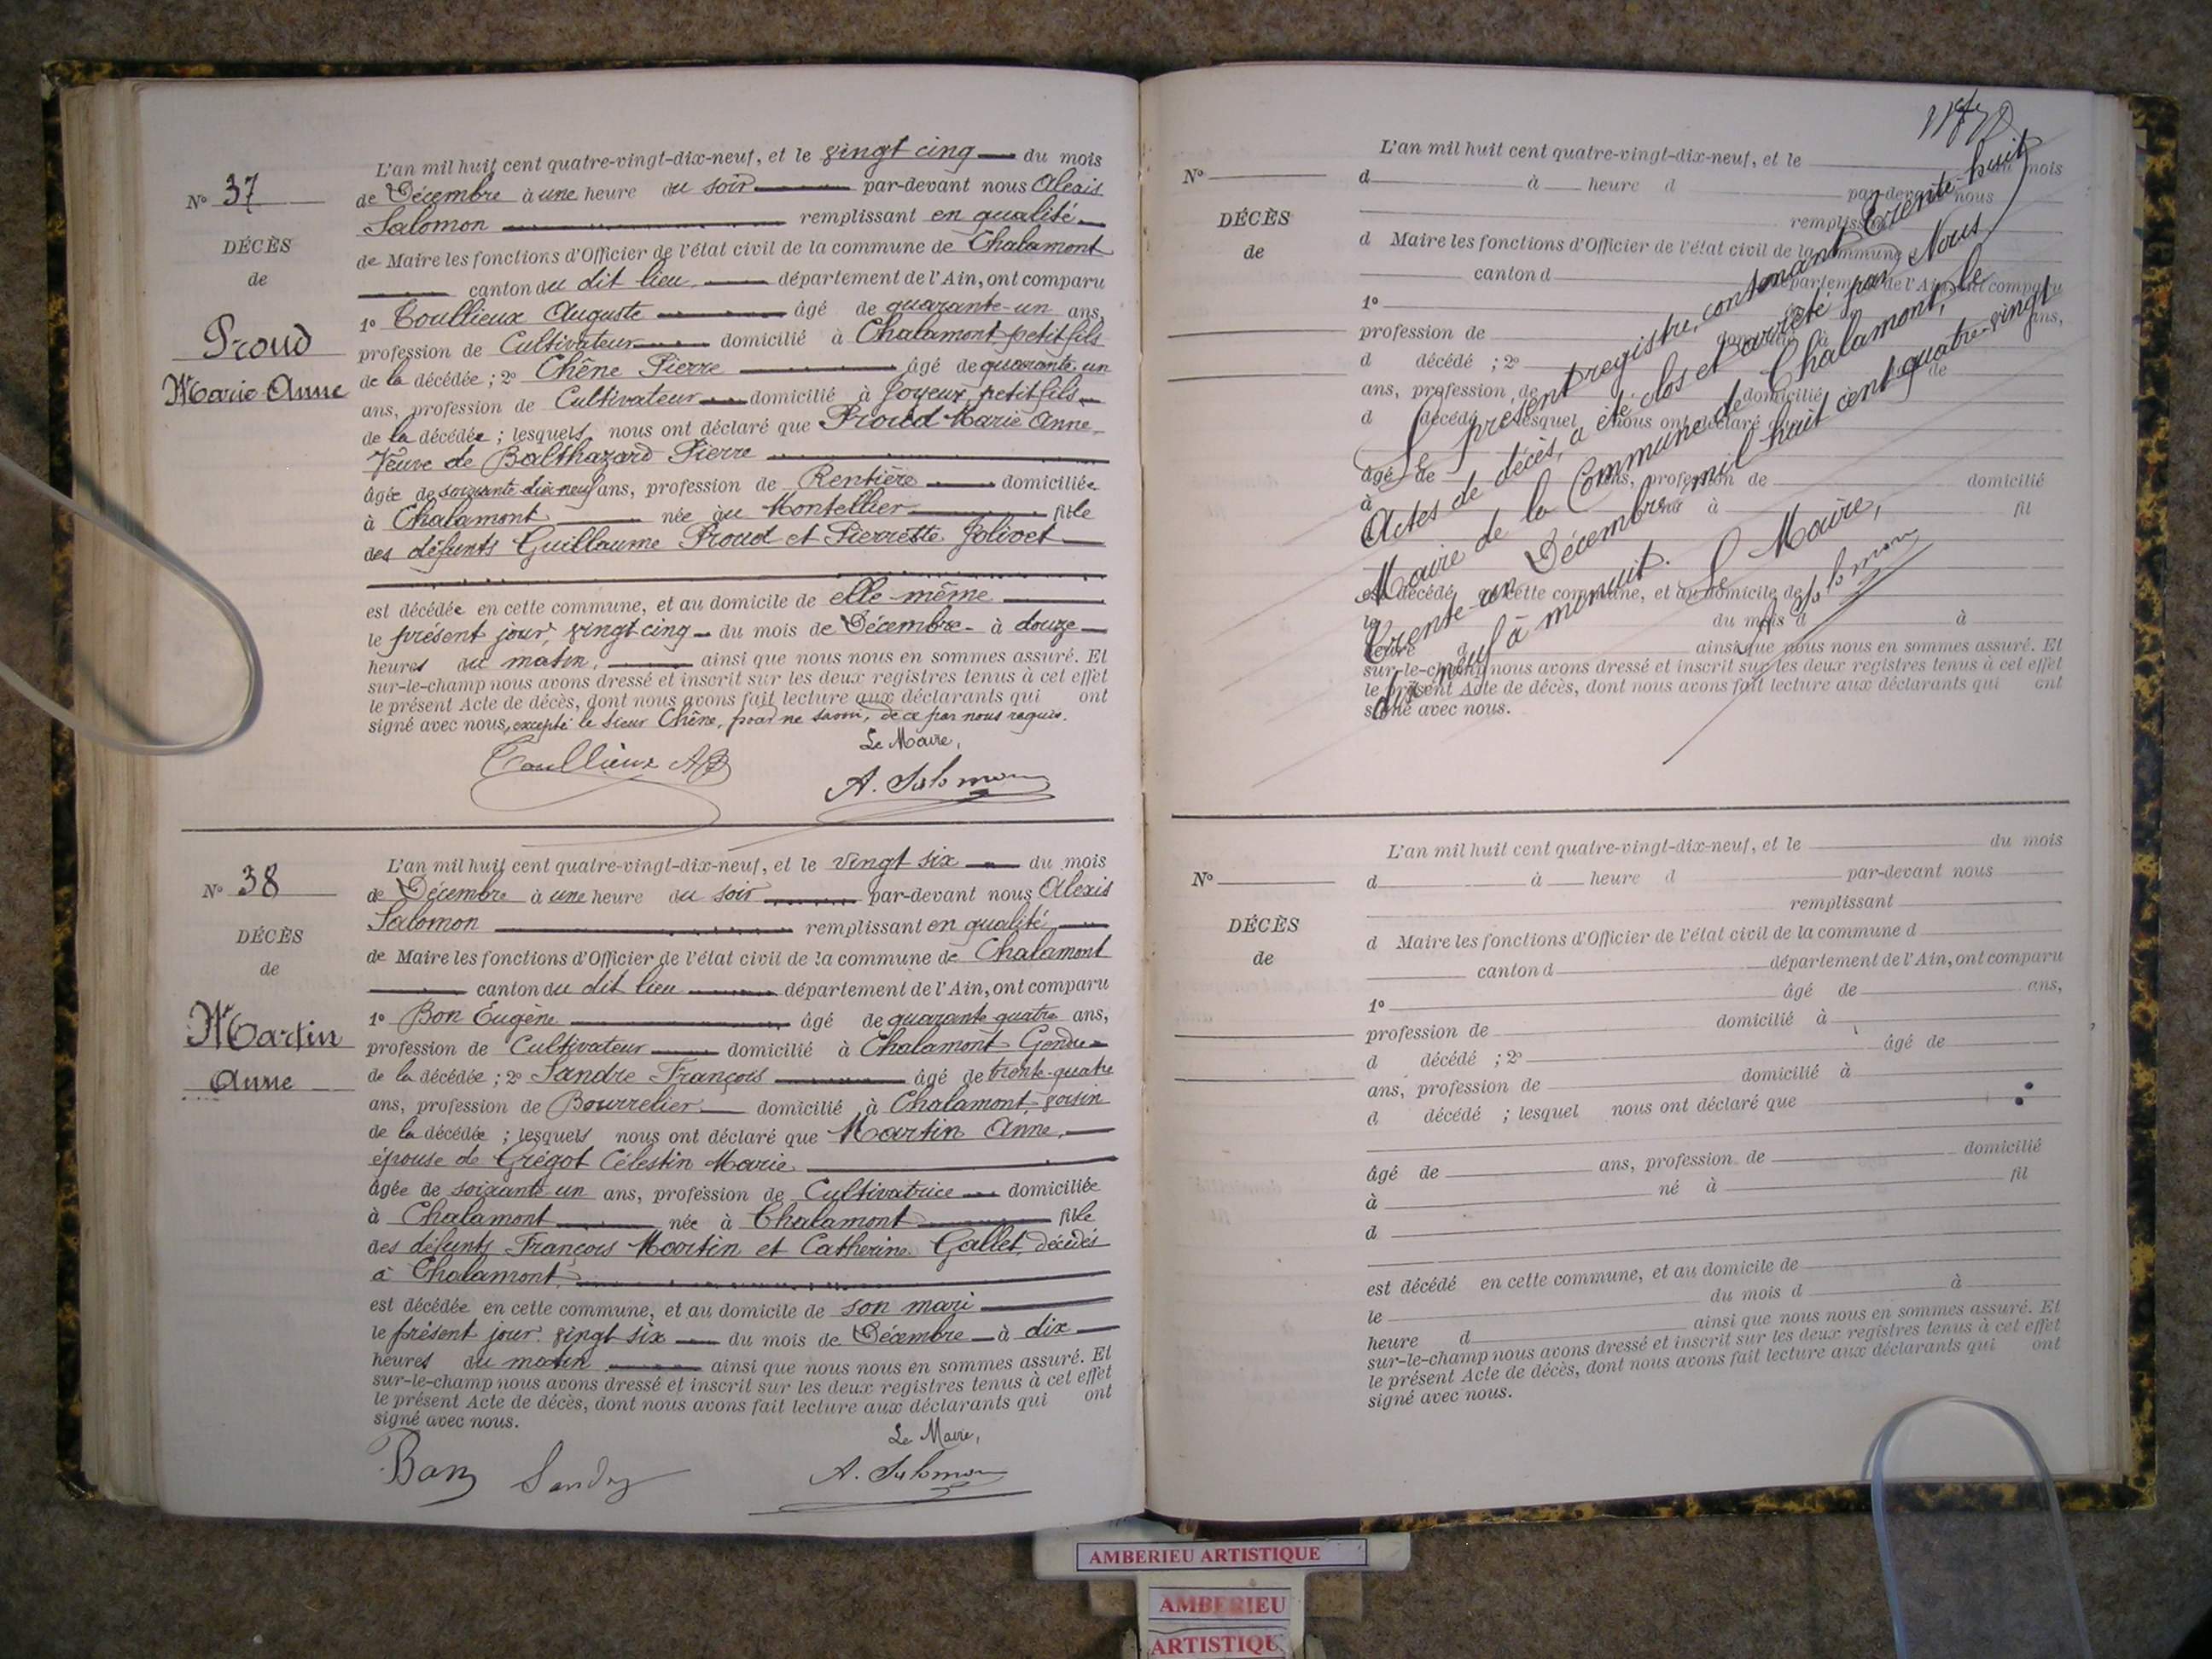 N° 37
DÉCÈS
de
Proud
Marie Anne
L'an mil huit cent quatre-vingt-dix-neuf, et le vingt cinq du mois
de Décembre à une heure du soir par-devant nous Alexis
Salomon remplissant en qualité
de Maire les fonctions d'Officier de l'état civil de la commune de Chalamont
canton du dit lieu, département de l'Ain, ont comparu
1° Toullieux Auguste âgé de quarante-un ans,
profession de Cultivateur domicilié à Chalamont petit fils
de la décédée ; 2° Chêne Pierre âgé de quarante un
ans, profession de Cultivateur domicilié à Joyeux, petit fils
de la décédée ; lesquels nous ont déclaré que Proud Marie Anne,
Veuve de Balthazard Pierre
âgée de soixante-dix-neuf ans, profession de Rentière domiciliée
à Chalamont née au Montellier fille
des défunts Guillaume Proud et Pierrette Jolivet
est décédée en cette commune, et au domicile de elle-même
le présent jour, vingt cinq du mois de Décembre à douze
heures du matin, ainsi que nous nous en sommes assuré. Et
sur-le-champ nous avons dressé et inscrit sur les deux registres tenus à cet effet
le présent Acte de décès, dont nous avons fait lecture aux déclarants qui ont
signé avec nous, excepté le sieur Chêne, pour ne savoir, de ce par nous requis.
Le Maire,
Toullieux
A. Salomon
N° 38
DÉCÈS
de
Martin
Anne
L'an mil huit cent quatre-vingt-dix-neuf, et le vingt six du mois
de Décembre à une heure du soir par-devant nous Alexis
Salomon remplissant en qualité
de Maire les fonctions d'Officier de l'état civil de la commune de Chalamont
canton du dit lieu département de l'Ain, ont comparu
1° Bon Eugène âgé de quarante quatre ans,
profession de Cultivateur domicilié à Chalamont Gendre
de la décédée ; 2° Sandre François âgé de trente-quatre
ans, profession de Bourrelier domicilié à Chalamont, voisin
de la décédée ; lesquels nous ont déclaré que Martin Anne,
épouse de Grégot Célestin Marie
âgée de soixante un ans, profession de Cultivatrice domiciliée
à Chalamont née à Chalamont fille
des défunts François Martin et Catherine Gallet, décédés
à Chalamont
est décédée en cette commune, et au domicile de son mari
le présent jour vingt six du mois de Décembre à dix
heures du matin ainsi que nous nous en sommes assuré. Et
sur-le-champ nous avons dressé et inscrit sur les deux registres tenus à cet effet
le présent Acte de décès, dont nous avons fait lecture aux déclarants qui ont
signé avec nous.
Le Maire,
Bon Sandre
A. Salomon
N°
DÉCÈS
de
L'an mil huit cent quatre-vingt-dix-neuf, et le du mois
d à heure d par-devant nous
remplissant
d Maire les fonctions d'Officier de l'état civil de la commune
canton d département de l'Ain, ont comparu
1°
profession de domicilié à ans,
d décédé ; 2° de
ans, profession de domicilié
d décédé lesquel nous ont déclaré
âgé de ans, profession de domicilié
à né à fil
est décédé en cette commune, et au domicile de
le du mois d à
heure d ainsi que nous nous en sommes assuré. Et
sur-le-champ nous avons dressé et inscrit sur les deux registres tenus à cet effet
le présent Acte de décès, dont nous avons fait lecture aux déclarants qui ont
signé avec nous.
Le présent registre, contenant trente-huit
Actes de décès, a été clos et arrêté par Nous
Maire de la Commune de Chalamont, le
trente-un Décembre mil huit cent quatre-vingt
dix neuf à minuit.
Le Maire,
A. Salomon
N°
DÉCÈS
de
L'an mil huit cent quatre-vingt-dix-neuf, et le du mois
d à heure d par-devant nous
remplissant
d Maire les fonctions d'Officier de l'état civil de la commune d
canton d département de l'Ain, ont comparu
1° âgé de ans,
profession de domicilié à
d décédé ; 2° âgé de
ans, profession de domicilié à
d décédé ; lesquel nous ont déclaré que
âgé de ans, profession de domicilié
à né à fil
d
est décédé en cette commune, et au domicile de
le du mois d à
heure d ainsi que nous nous en sommes assuré. Et
sur-le-champ nous avons dressé et inscrit sur les deux registres tenus à cet effet
le présent Acte de décès, dont nous avons fait lecture aux déclarants qui ont
signé avec nous.
AMBERIEU ARTISTIQUE
AMBERIEU
ARTISTIQUE